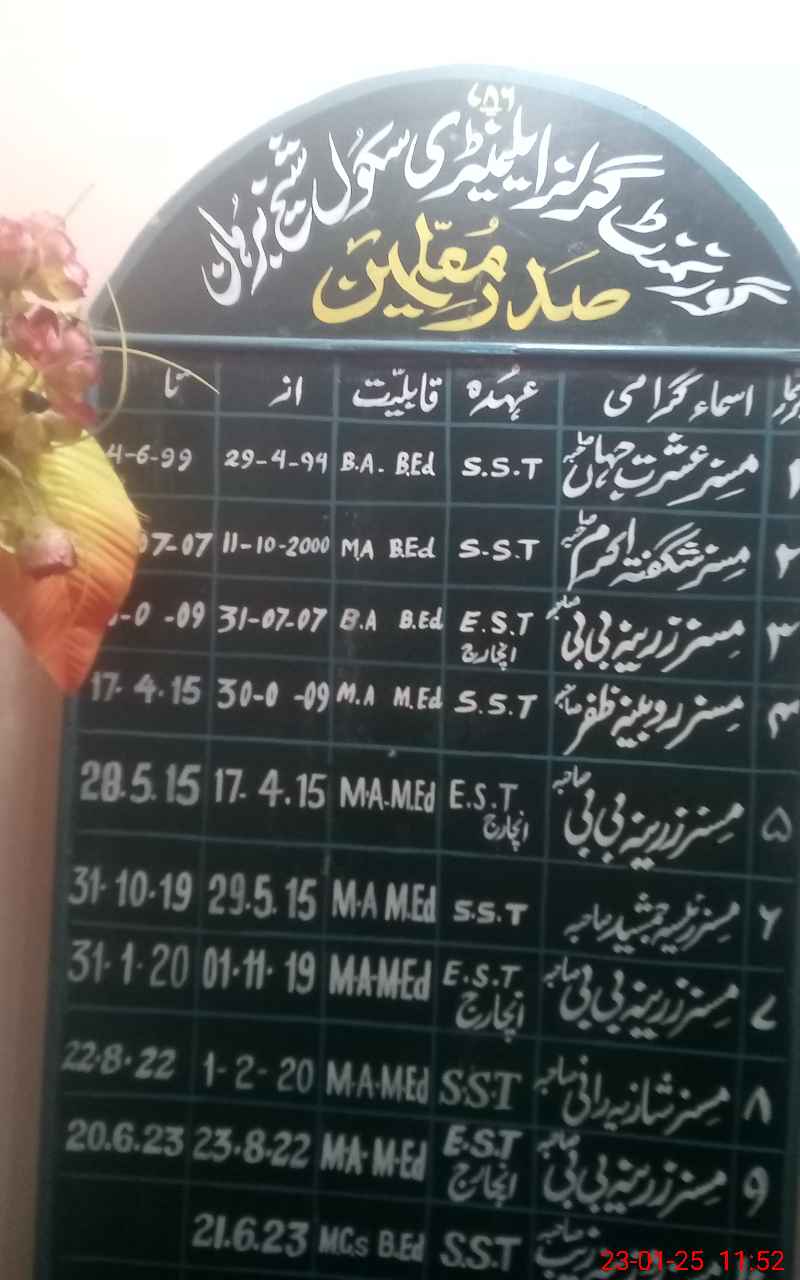 ۷۸۶
گورنمنٹ گرلز ایلیمنٹری سکول شیخ برہان
صدر معلمین
اسماء گرامی عہدہ قابلیت از تا
۱ مسز عشرت جہاں صاحبہ S.S.T B.A. B.Ed 29-4-94 4-6-99
۲ مسز شگفتہ اکرم صاحبہ S.S.T M.A B.Ed 11-10-2000 07-07
۳ مسز زرینہ بی بی صاحبہ E.S.T انچارج B.A B.Ed 31-07-07 -0 -09
۴ مسز روبینہ ظفر صاحبہ S.S.T M.A M.Ed 30-0 -09 17.4.15
۵ مسز زرینہ بی بی صاحبہ E.S.T انچارج M.A.M.Ed 17.4.15 28.5.15
۶ مسز جمشید صاحبہ S.S.T M.A M.Ed 29.5.15 31.10.19
۷ مسز زرینہ بی بی صاحبہ E.S.T انچارج M.A.M.Ed 01.11.19 31.1.20
۸ مسز شازیہ رانی صاحبہ S.S.T M.A.M.Ed 1-2-20 22.8.22
۹ مسز زرینہ بی بی صاحبہ E.S.T انچارج M.A.M.Ed 23.8.22 20.6.23
صاحبہ S.S.T M.Cs B.Ed 21.6.23
23-01-25 11:52